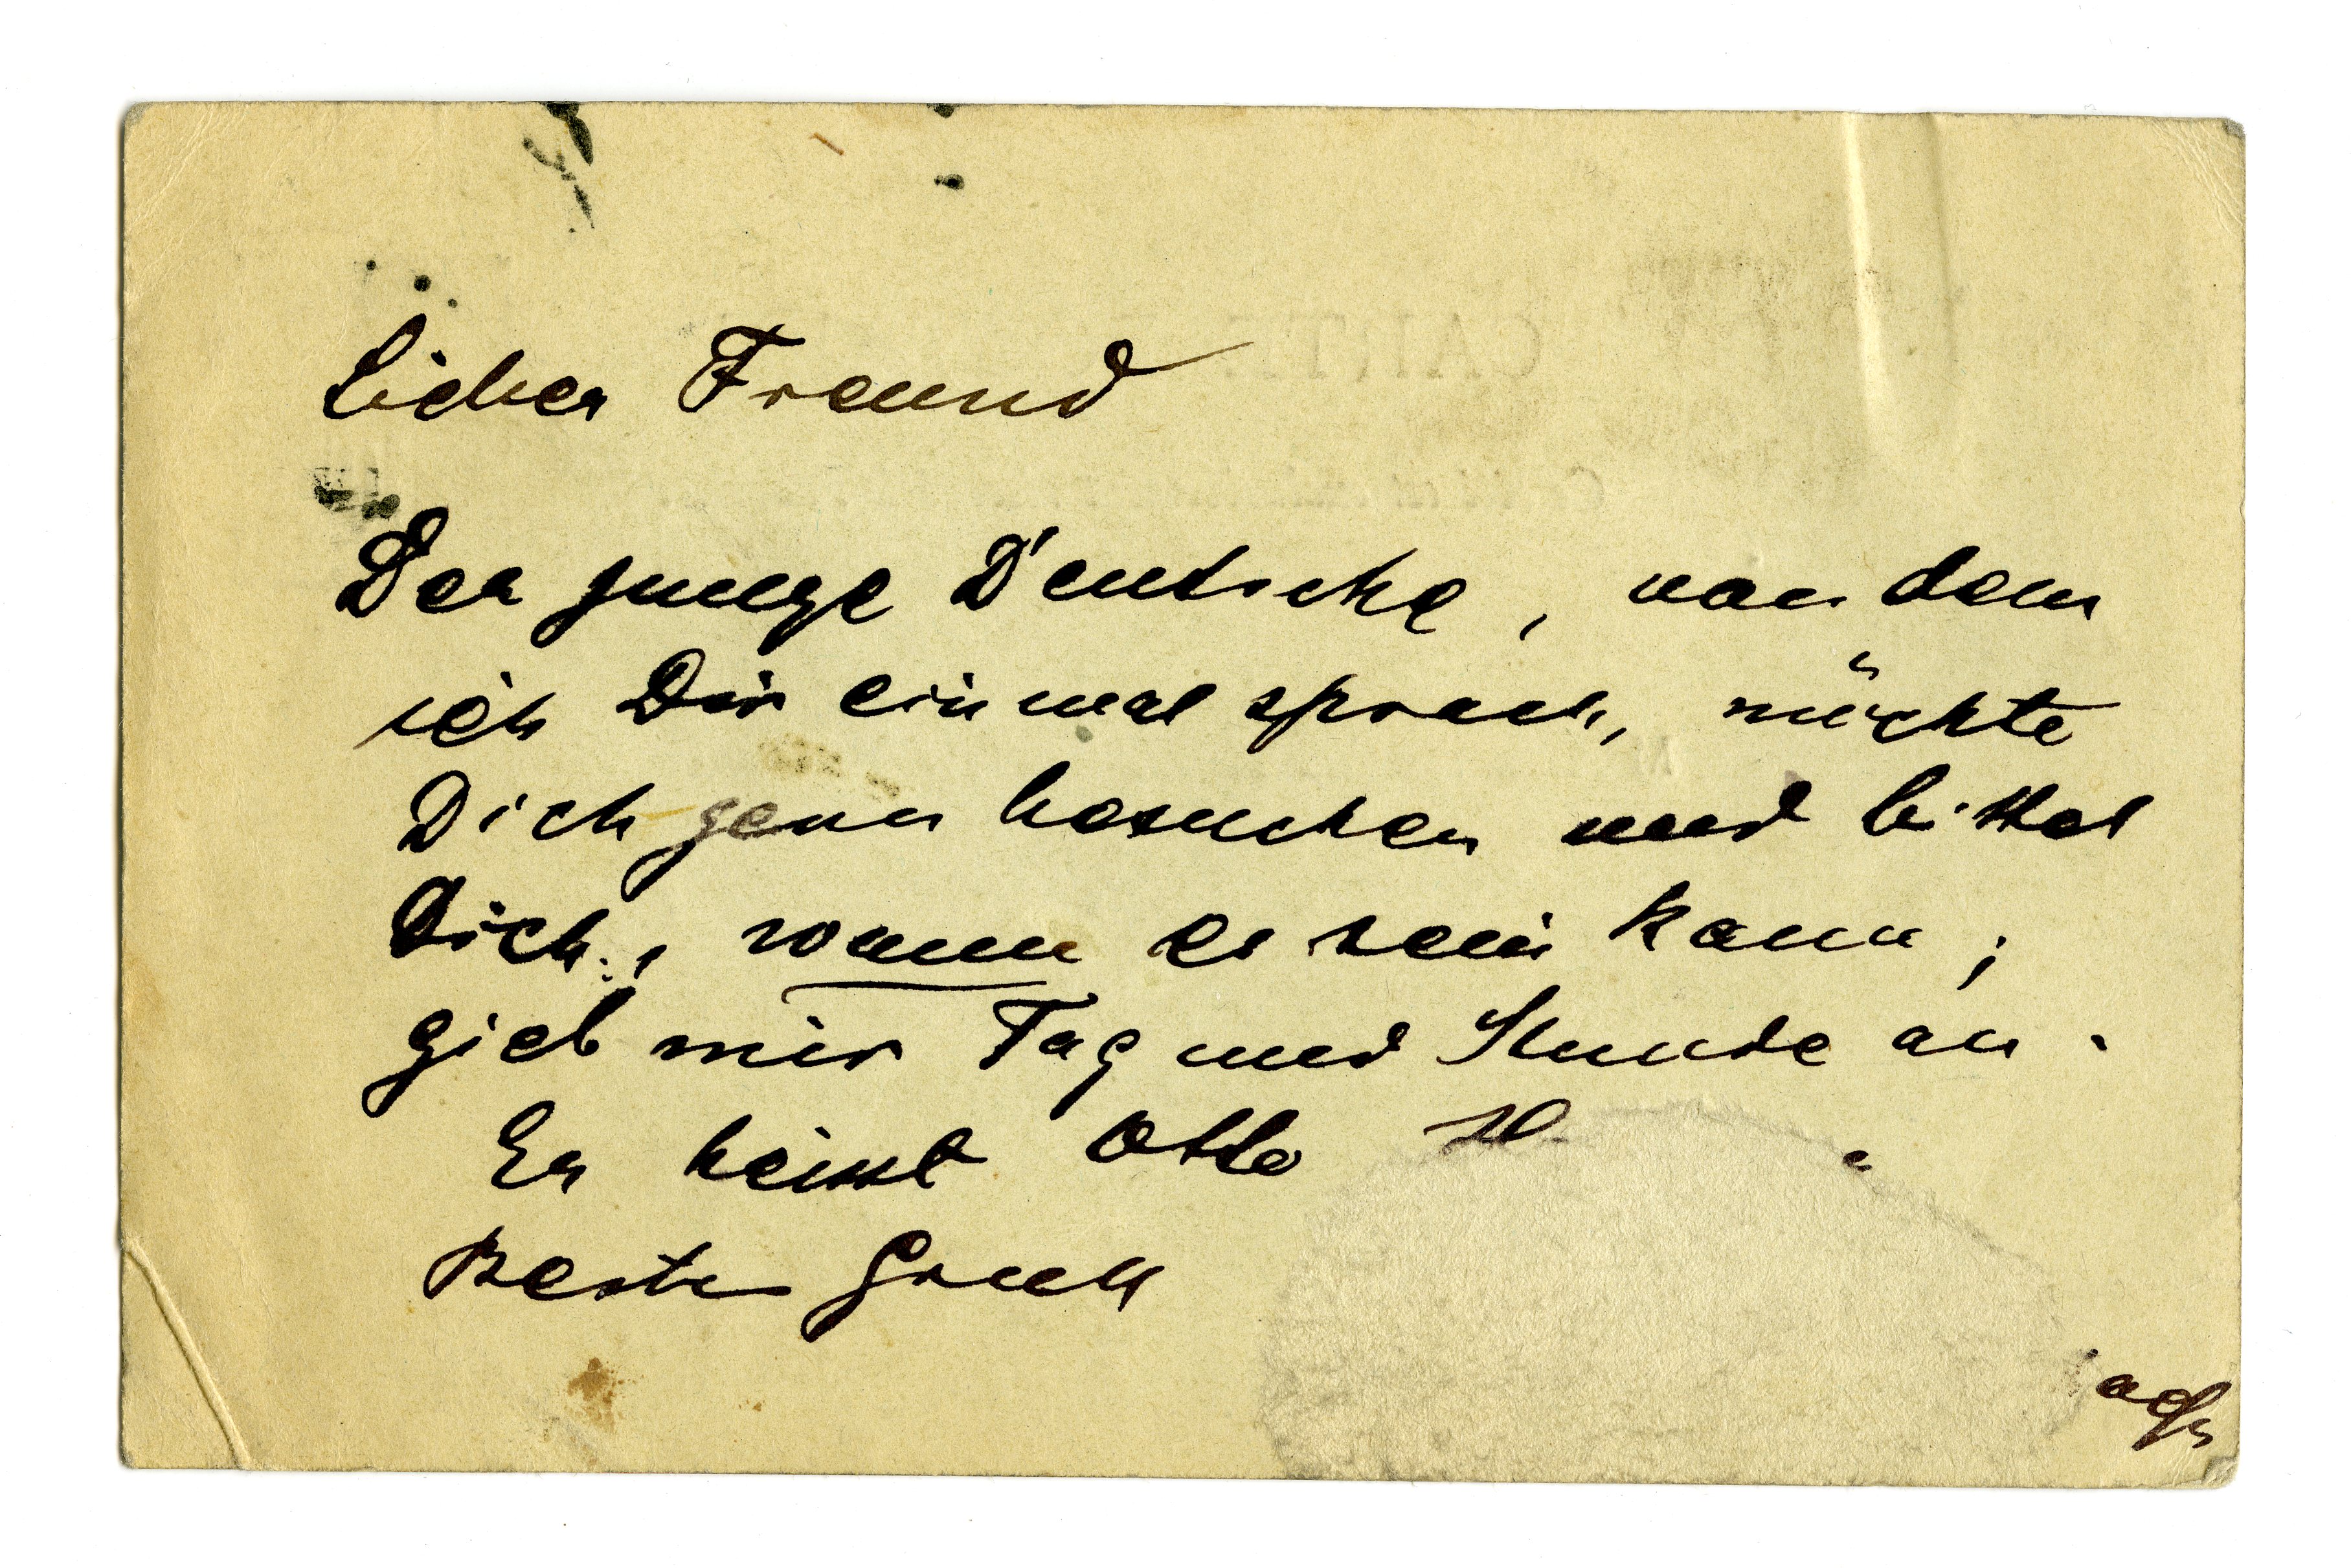 Lieber Freund
CARTE
Der junge Deutsche, von dem
ich Dir einmal sprach, möchte
Dich gern besuchen und bittet
Dich, wann es sein kann;
gieb mir Tag und Stunde an.
Er heisst Otto
Besten Gruss